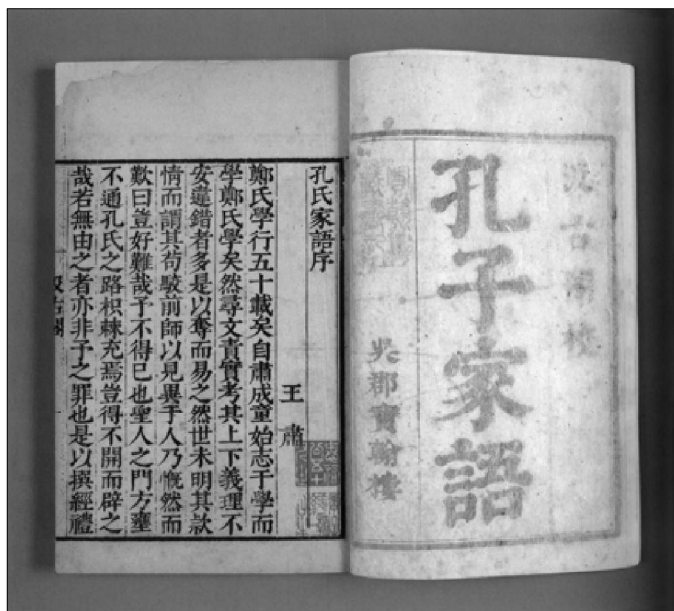 汲古閣校
孔子家語
吳郡寶翰樓
孔氏家語序
王肅
鄭氏學行五十載矣自肅成童始志于學而
學鄭氏學矣然尋文責實考其上下義理不
安違錯者多是以奪而易之然世未明其款
情而謂其苟駁前師以見異于人乃慨然而
歎曰豈好難哉予不得已也聖人之門方壅
不通孔氏之路枳棘充焉豈得不開而辟之
哉若無由之者亦非予之罪也是以撰經禮
汲古閣